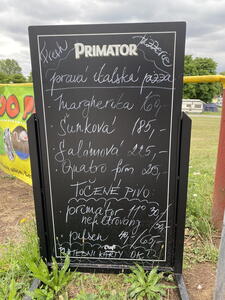 Fresh PRIMATOR pizzerie
pravá italská pizza
- margherita 169,-
- Šunková 185,-
- Salámová 225,-
- Quatro form 215,-
TOČENÉ PIVO
- primátor 11° 39/
nefiltrovaný
- pilsen 49/65,-
PLATEBNÍ KARTY OK